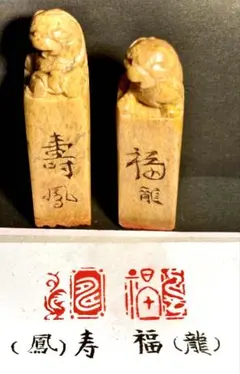 壽
鳳
福
龍
(鳳) 寿 福 (龍)